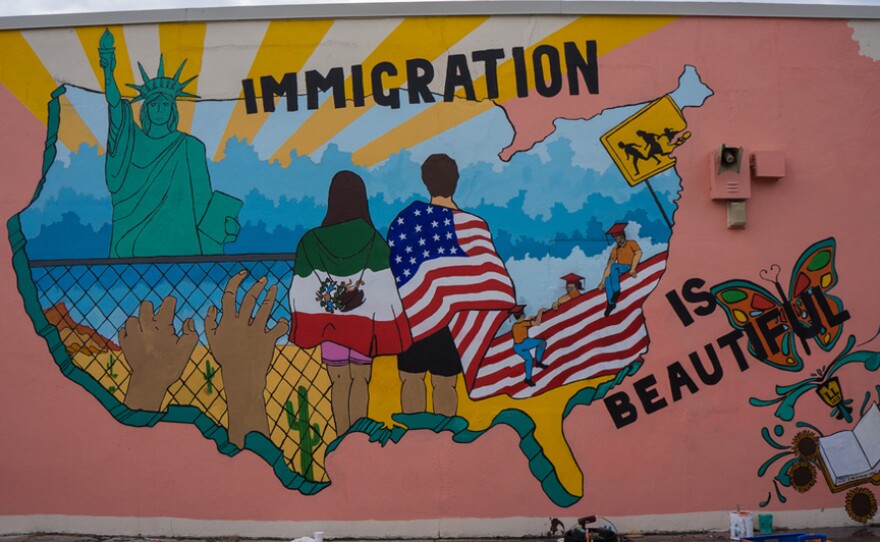 IMMIGRATION
IS
BEAUTIFUL